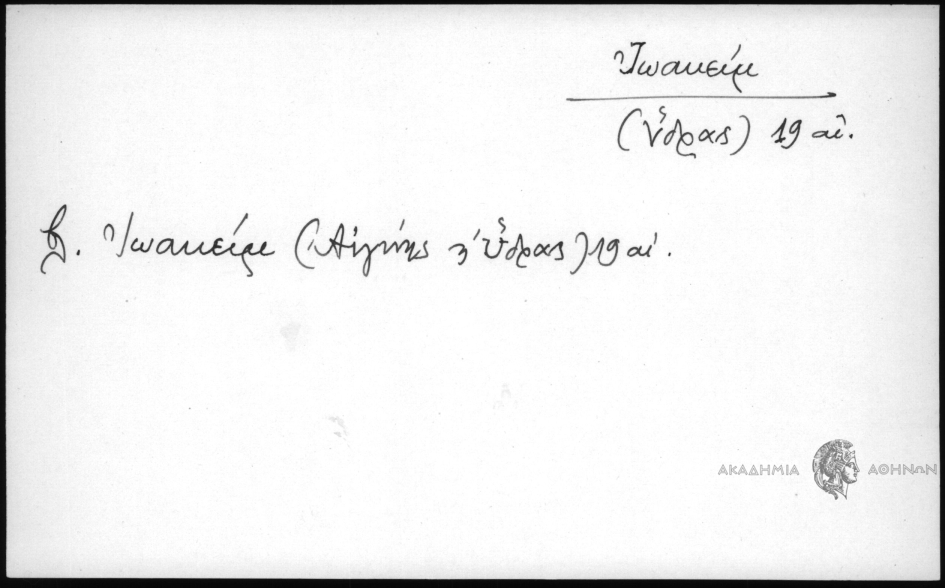 Ἰωακείμ
(Ὕδρας) 19 αἰ.
β. Ἰωακείμ (Αἰγίνης κ' Ὕδρας) 19 αἰ.
ΑΚΑΔΗΜΙΑ ΑΘΗΝΩΝ